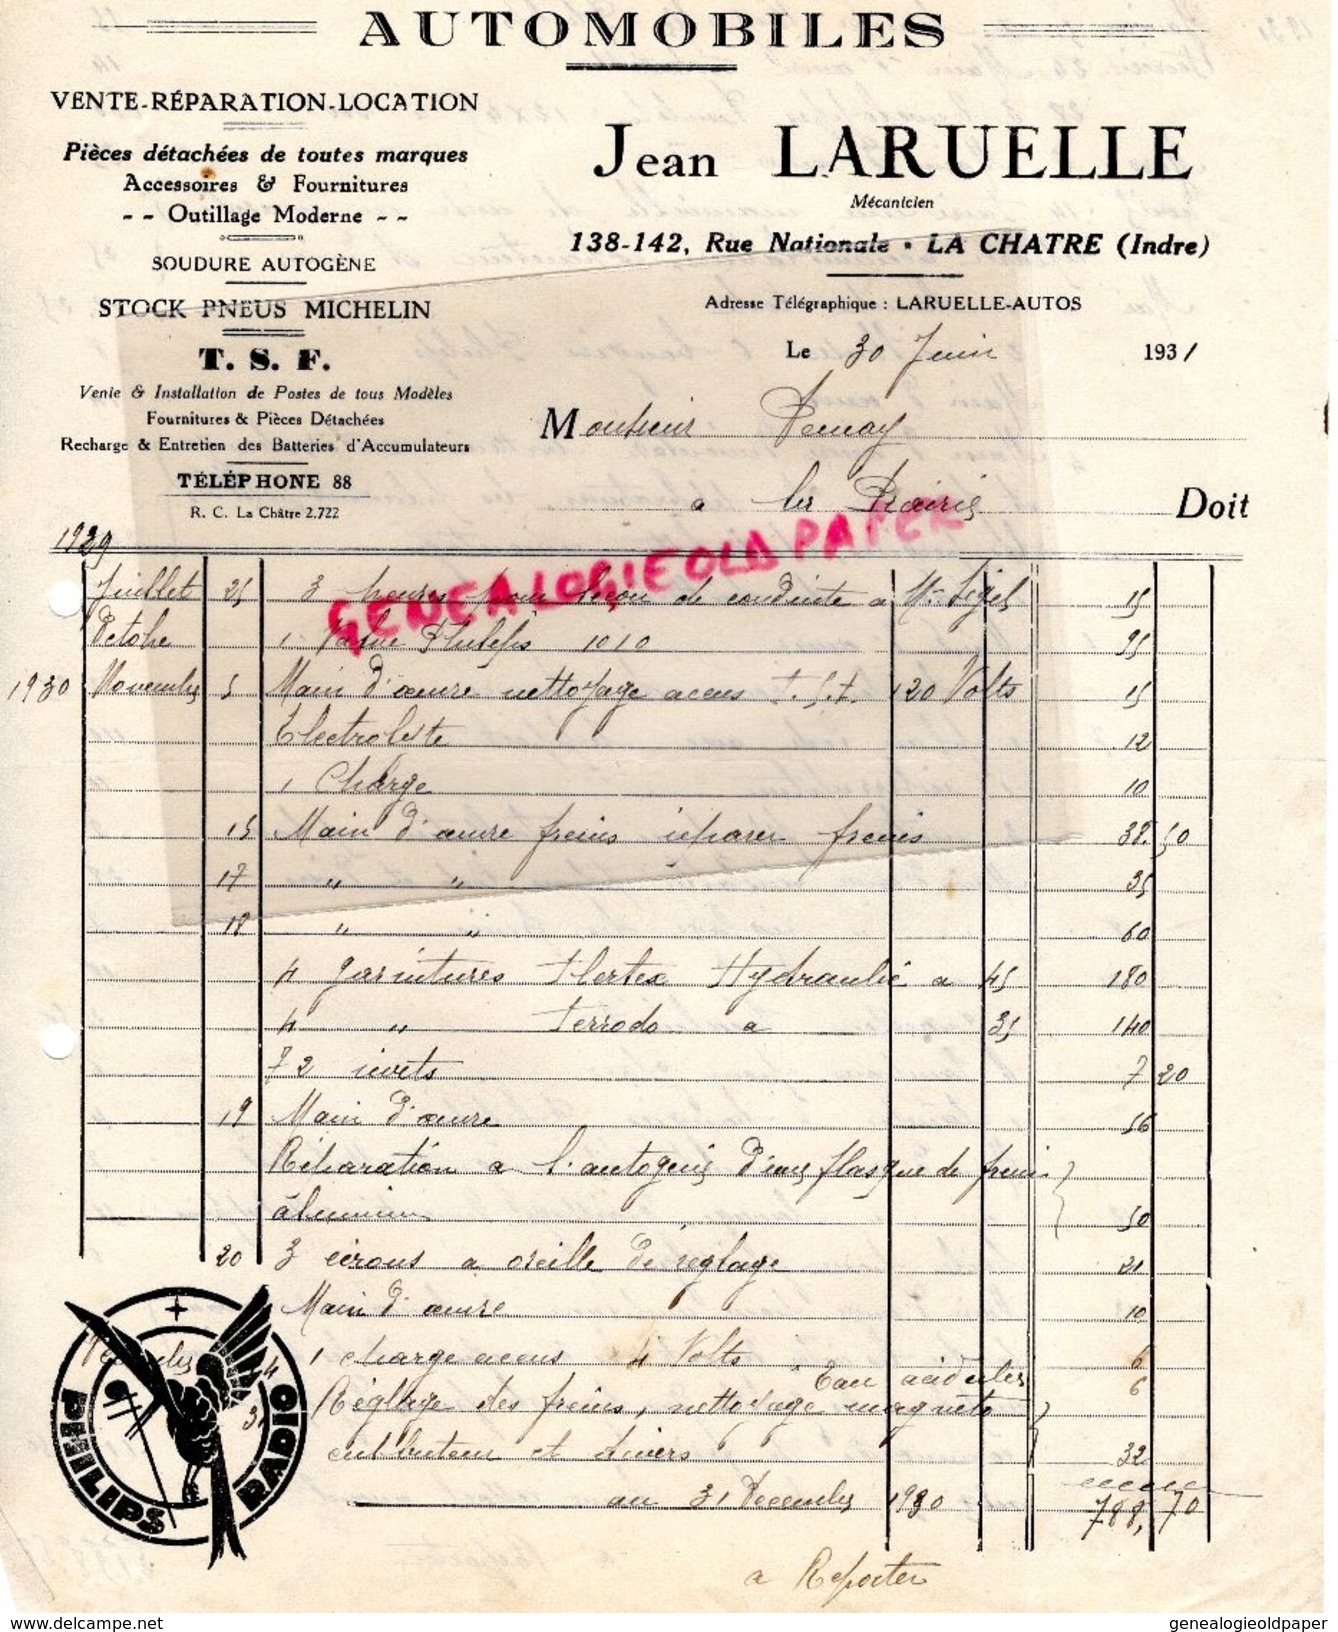 AUTOMOBILES
VENTE-RÉPARATION-LOCATION
Pièces détachées de toutes marques
Accessoires & Fournitures
- - Outillage Moderne - -
SOUDURE AUTOGÈNE
STOCK PNEUS MICHELIN
T. S. F.
Vente & Installation de Postes de tous Modèles
Fournitures & Pièces Détachées
Recharge & Entretien des Batteries d'Accumulateurs
TÉLÉPHONE 88
R. C. La Châtre 2.722
Jean LARUELLE
Mécanicien
138-142, Rue Nationale • LA CHATRE (Indre)
Adresse Télégraphique : LARUELLE-AUTOS
Le 30 Juin 1931
Monsieur
a Doit
GENEALOGIE OLD PAPER
1929
Juillet 25 3 heures pour leçon de conduite a Mr 15
Octobre 1 Philips 1010 95
1930 Novembre 5 Main d'œuvre nettoyage accus t.s.f. 120 Volts 15
Electrolyte 12
1 Charge 10
15 Main d'œuvre freins réparer freins 38. 50
17 " " 35
18 " " 60
4 garnitures Flertex Hydraulic a 45 180
4 " Ferrodo a 35 140
72 rivets 7 20
19 Main d'œuvre 56
Réparation a l'autogène d'une flasque de frein
aluminium 50
20 3 écrous a oreille de réglage 21
Main d'œuvre 10
Décembre 4 1 charge accus 4 Volts 6
Eau acidulée 6
31 Réglage des freins, nettoyage magnéto
et divers 32
au 31 Décembre 1930 788, 70
a Reporter
PHILIPS RADIO
www.delcampe.net
genealogieoldpaper